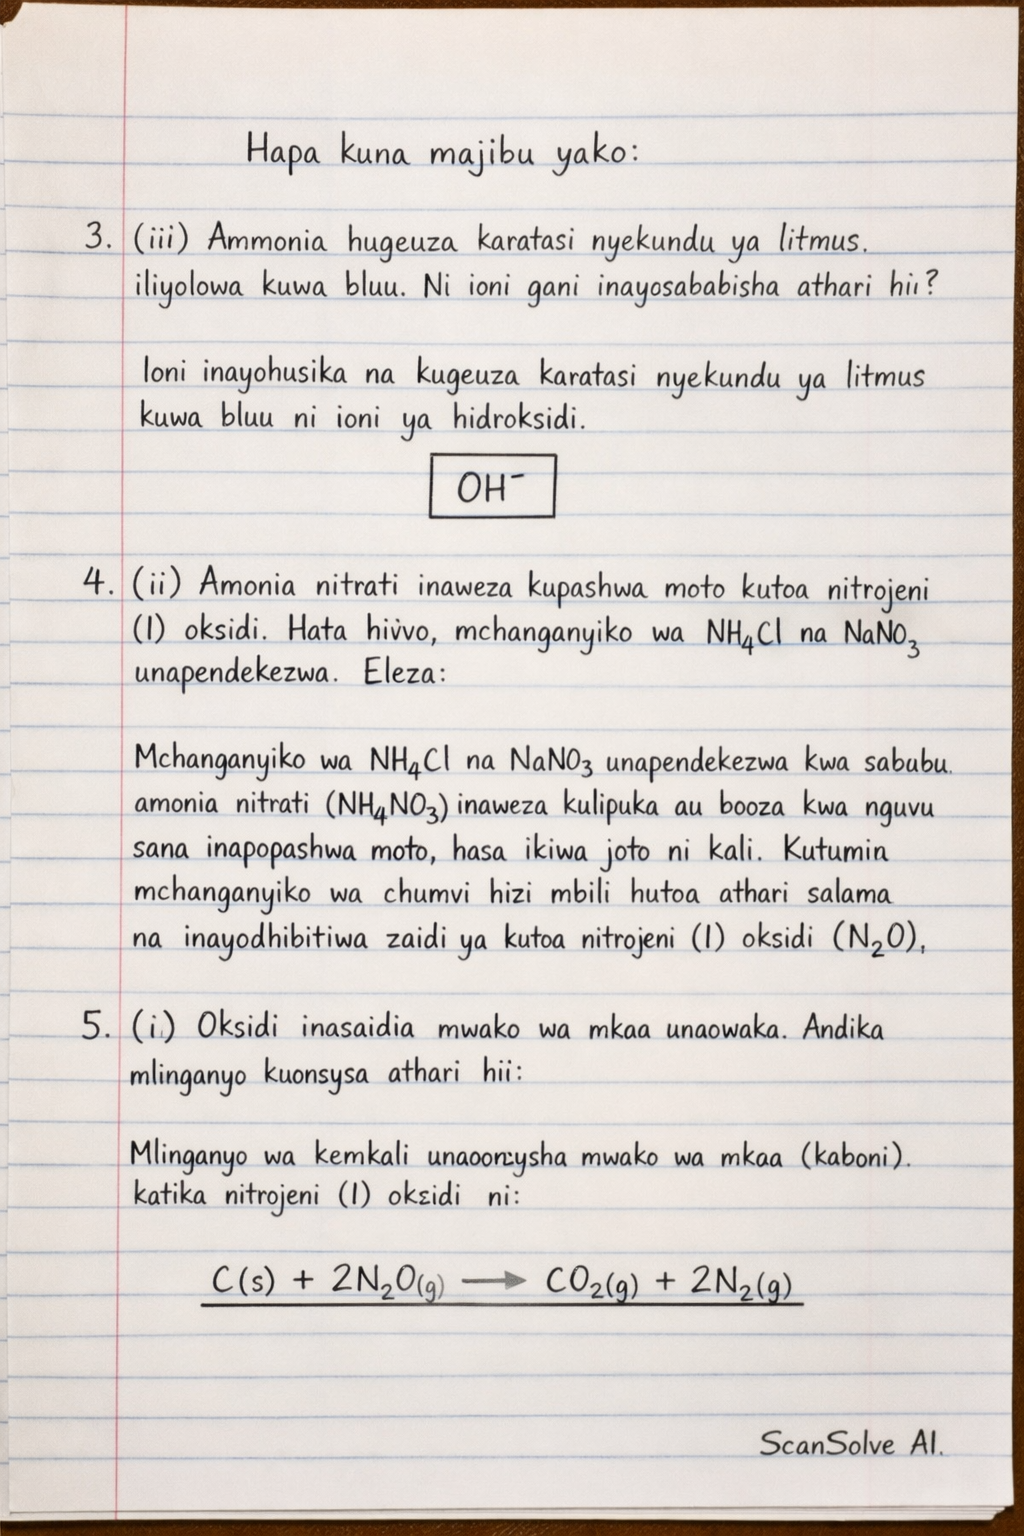 Hapa kuna majibu yako:
3. (iii) Ammonia hugeuza karatasi nyekundu ya litmus.
iliyolowa kuwa bluu. Ni ioni gani inayosababisha athari hii?
Ioni inayohusika na kugeuza karatasi nyekundu ya litmus
kuwa bluu ni ioni ya hidroksidi.
OH⁻
4. (ii) Amonia nitrati inaweza kupashwa moto kutoa nitrojeni
(I) oksidi. Hata hivvo, mchanganyiko wa NH₄Cl na NaNO₃
unapendekezwa. Eleza:
Mchanganyiko wa NH₄Cl na NaNO₃ unapendekezwa kwa sababu.
amonia nitrati (NH₄NO₃) inaweza kulipuka au booza kwa nguvu
sana inapopashwa moto, hasa ikiwa joto ni kali. Kutumia
mchanganyiko wa chumvi hizi mbili hutoa athari salama
na inayodhibitiwa zaidi ya kutoa nitrojeni (I) oksidi (N₂O),
5. (i.) Oksidi inasaidia mwako wa mkaa unaowaka. Andika
mlinganyo kuonsysa athari hii:
Mlinganyo wa kemkali mwako wa mkaa (kaboni).
katika nitrojeni (I) oksidi ni:
C(s) + 2N₂O(g) → CO₂(g) + 2N₂(g)
ScanSolve AI.